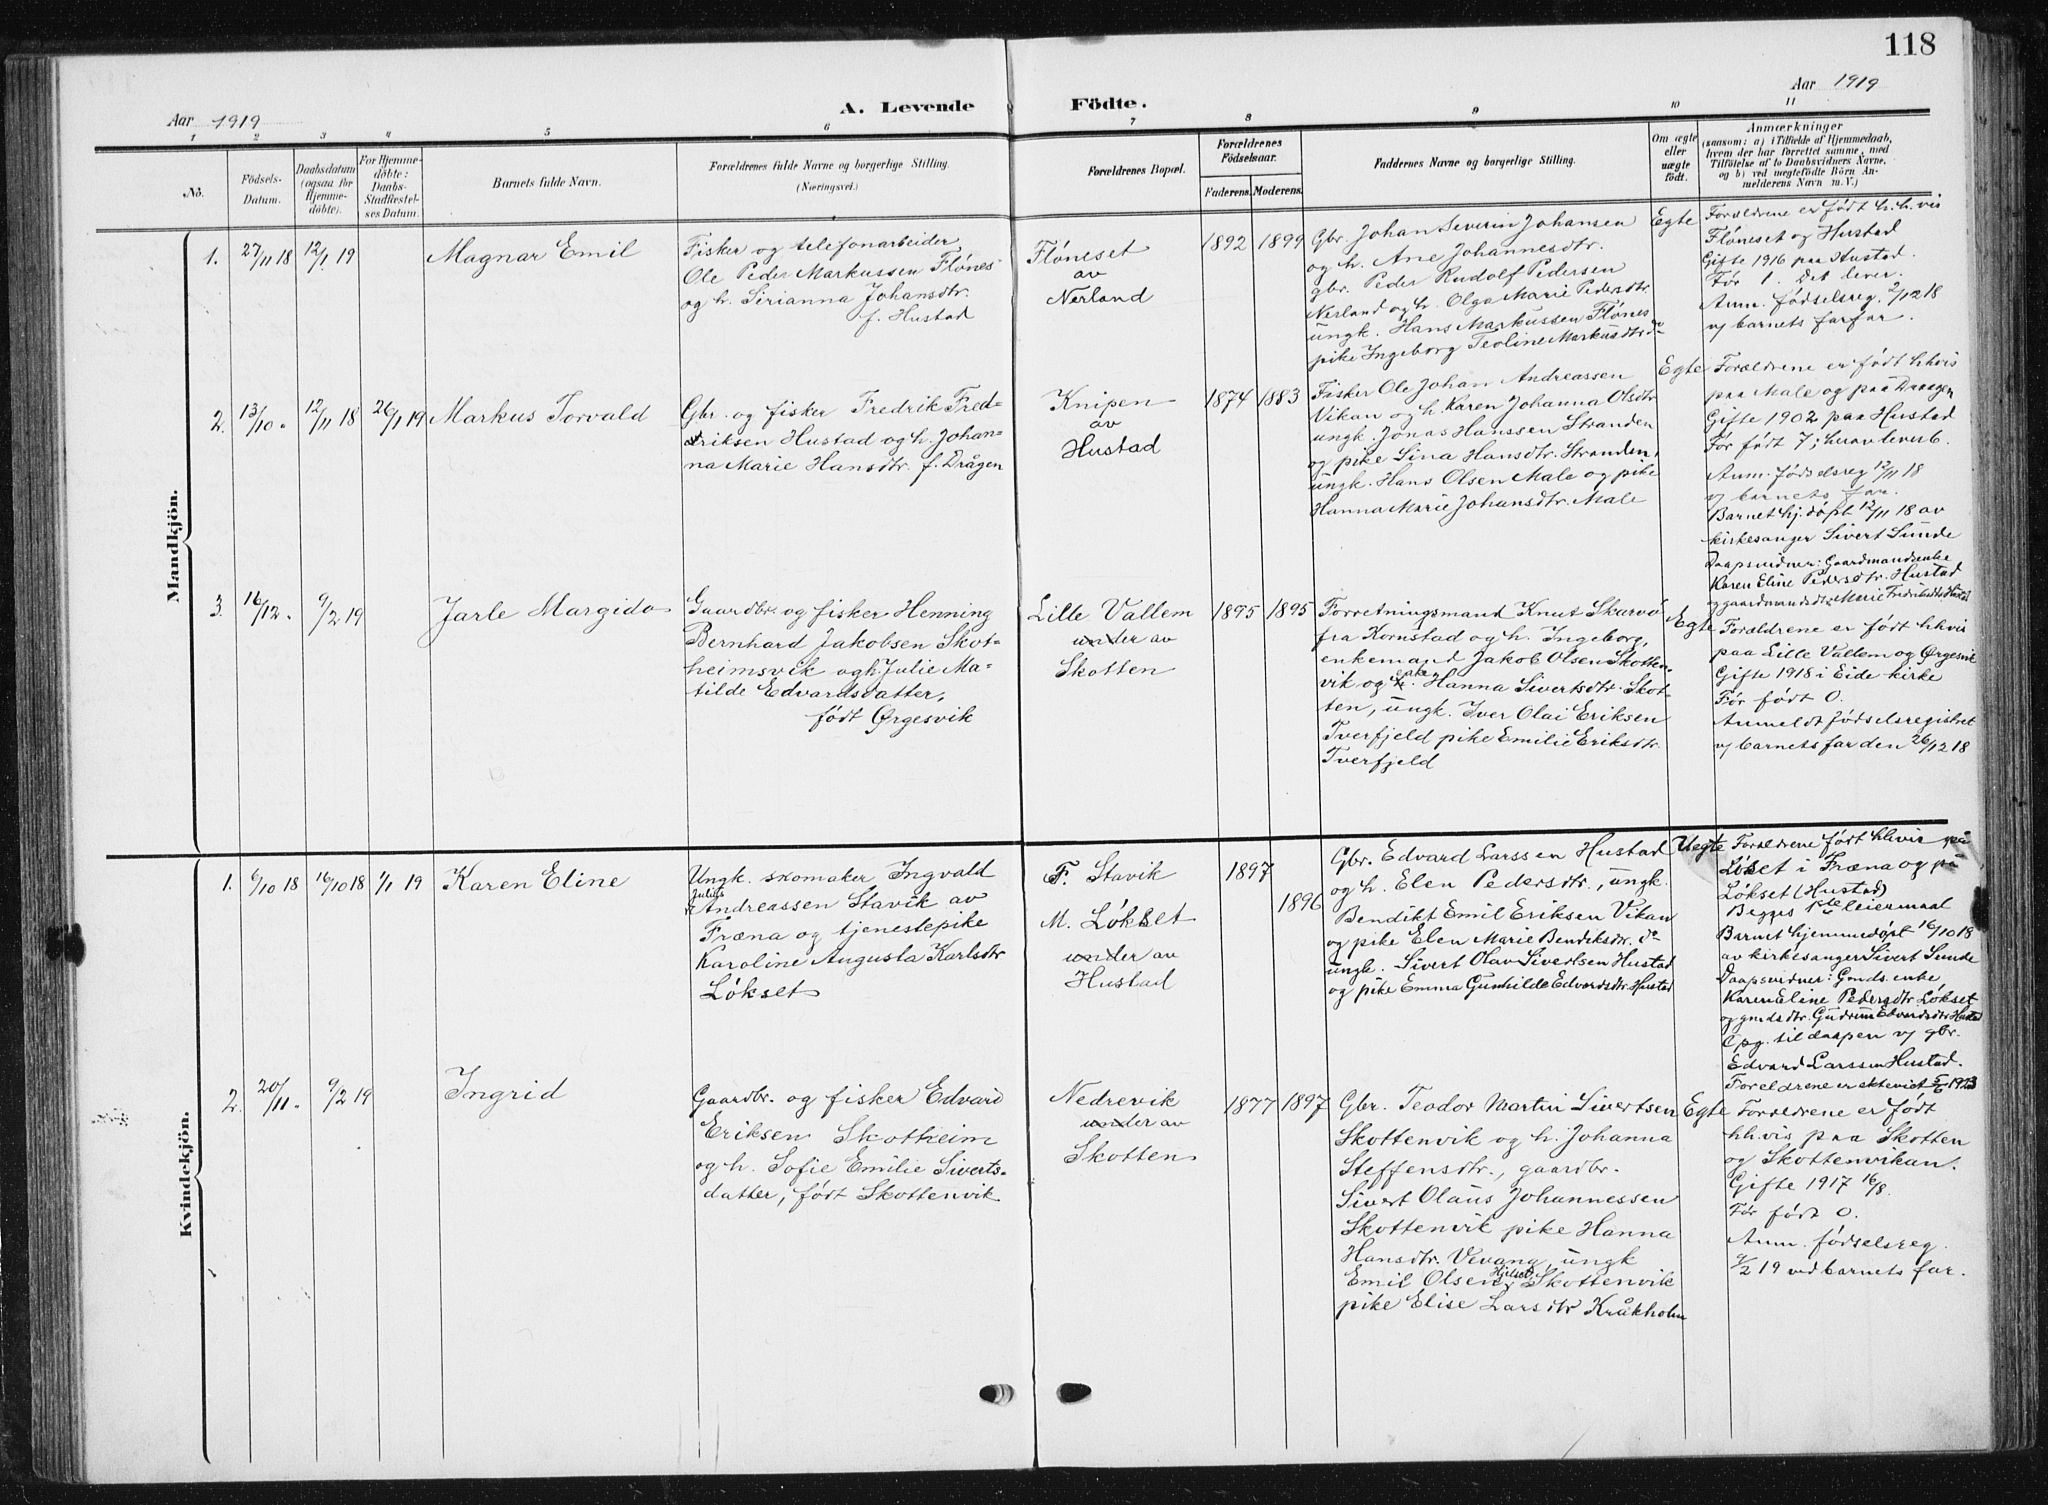 118
Aar 1919
A. Levende Födte.
Aar 1919
1 2 3 4 5 6 7 8 9 10 11
No.
Födsels-
Datum.
Daabsdatum
(ogsaa for
Hjemme-
döbte).
For Hjemme-
döbte:
Daabs-
Stadfæstel-
ses Datum.
Barnets fulde Navn.
Forældrenes fulde Navne og borgerlige Stilling.
(Næringsvei.)
Forældrenes Bopæl.
Forældrenes
Födselsaar.
Faderens. Moderens.
Faddernes Navne og borgerlige Stilling.
Om ægte
eller
uægte
födt.
Anmærkninger
(saasom: a) i Tilfælde af Hjemmedaab,
hvem der har forrettet samme, med
Tilföielse af to Daabsvidners Navne,
og b) ved uægtefödte Börn An-
melderens Navn m. V.)
Mandkjön.
1. 27/11 18 12/1 19
Magnar Emil
Fisker og telefonarbeider
Ole Peder Markussen Flønes
og h. Sirianna Johansdtr.
f. Hustad
Fløneset
av
Nerland
1892 1899
Gbr. Johan Severin Johansen
og h. Ane Johannesdtr.
gbr. Peder Rudolf Pedersen
Nerland og h. Olga Marie Pedersdtr
ungk. Hans Markussen Flønes
pike Ingeborg Teoline Markusdtr do
Egte
Forældrene er født h.h.vis
Fløneset og Hustad
Gifte 1916 paa Hustad.
Før 1. Det lever.
Anm. fødselsreg. 2/12 18
v/ barnets farfar.
2. 13/10 „ 12/11 18 26/1 19
Markus Torvald
Gbr. og fisker Fredrik Fred-
riksen Hustad og h. Johan-
na Marie Hansdtr. f. Drågen
Knipen
av
Hustad
1874 1883
Fisker Ole Johan Andreassen
Vikan og h. Karen Johanna Olsdtr
ungk. Jonas Hanssen Stranden
og pike Lina Hansdtr. Stranden,
ungk. Hans Olsen Male og pike
Hanna Marie Johansdtr. Male
Egte
Forældrene er født hhvis
paa Male og paa Draagen
Gifte 1902 paa Hustad
Før født 7; hvav lever 6.
Anm. fødselsreg 12/11 18
v/ barnets far.
Barnet hj. døpt 12/11 18 av
kirkesanger Sivert Sunde
Daapsvidner: Gaardmandsenke
Karen Eline Pedersdtr. Hustad
og gaardmandsdtr. Marie Fredriksdtr Hustad
3. 16/12 „ 9/2 19
Jarle Margido
Gaardbr. og fisker Henning
Bernhard Jakobsen Skot-
heimsvik og h Julie Ma-
tilde Edvardsdatter,
født Ørgesvik
Lille Vallem
under av
Skotten
1895 1895
Forretningsmand Knut Skarvø
fra Kornstad og h. Ingeborg,
enkemand Jakob Olsen Skotten-
vik og pike Hanna Sivertsdtr. Skot-
ten, ungk. Iver Olai Eriksen
Tverfjeld pike Emilie Eriksdtr.
Tverfjeld
Egte
Forældrene er født hhvis
paa Lille Vallem og Ørgesvik
Gifte 1918 i Eide kirke
Før født 0.
Anmeldt fødselsregistret
v/ barnets far den 26/12 18
Kvindekjön.
1. 6/10 18 16/10 18 1/1 19
Karen Eline
Ungk. skomaker Ingvald
Julius
Andreassen Stavik av
Fræna og tjenestepike
Karoline Augusta Karlsdtr
Løkset
F. Stavik
M. Løkset
under av
Hustad
1897
1896
Gbr. Edvard Larssen Hustad
og h. Elen Pedersdtr., ungk.
Bendikt Emil Eriksen Vikan
og pike Elen Marie Bendiksdtr. do
ungk. Sivert Olav Sivertsen Hustad
og pike Emma Gunhilde Edvardsdtr. Hustad
Uegte
Forældrene født hhvis på
Løkset i Fræna og på
Løkset (Hustad)
Begges 1ste leiermaal
Barnet hjemmedøpt 16/10 18
av kirkesanger Sivert Sunde
Daapsvidner: Gmds. enke
Karen Eline Pedersdtr Løkset
og gmdsdtr. Gudrun Edvardsdtr Hustad
Opg. til daapen v/ gbr.
Edvard Larssen Hustad.
Foreldrene er ektevidt 5/6 1923
2. 20/11 „ 9/2 19
Ingrid
Gaardbr. og fisker Edvard
Eriksen Skotheim
og h. Sofie Emilie Siverts-
datter, født Skottenvik
Nedrevik
under av
Skotten
1877 1897
Gbr. Teodor Martin Sivertsen
Skottenvik og h. Johanna
Steffensdtr., gaardbr.
Sivert Olaus Johannessen
Skottenvik pike Hanna
Hansdtr. Vevang, ungk
Emil Olsen Hjelset Skottenvik
pike Elise Larsdtr Kråkholm
Egte
Forældrene er født
hh.vis paa Skotten
og Skottenvikan.
Gifte 1917 16/8.
Før født 0.
Anm. fødselsreg.
9/2 19 ved barnets far.